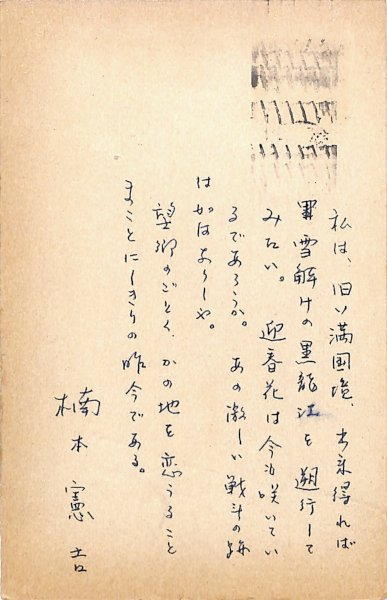 私は、旧い満国境、出来得れば
雪解けの黒龍江を遡行して
みたい。 迎春花は今も咲いてい
るであろうか。 あの激しい戦斗の跡
はかはありしや。
望郷のごとく、かの地を恋うること
まことにしきりの昨今である。
楠本憲吉